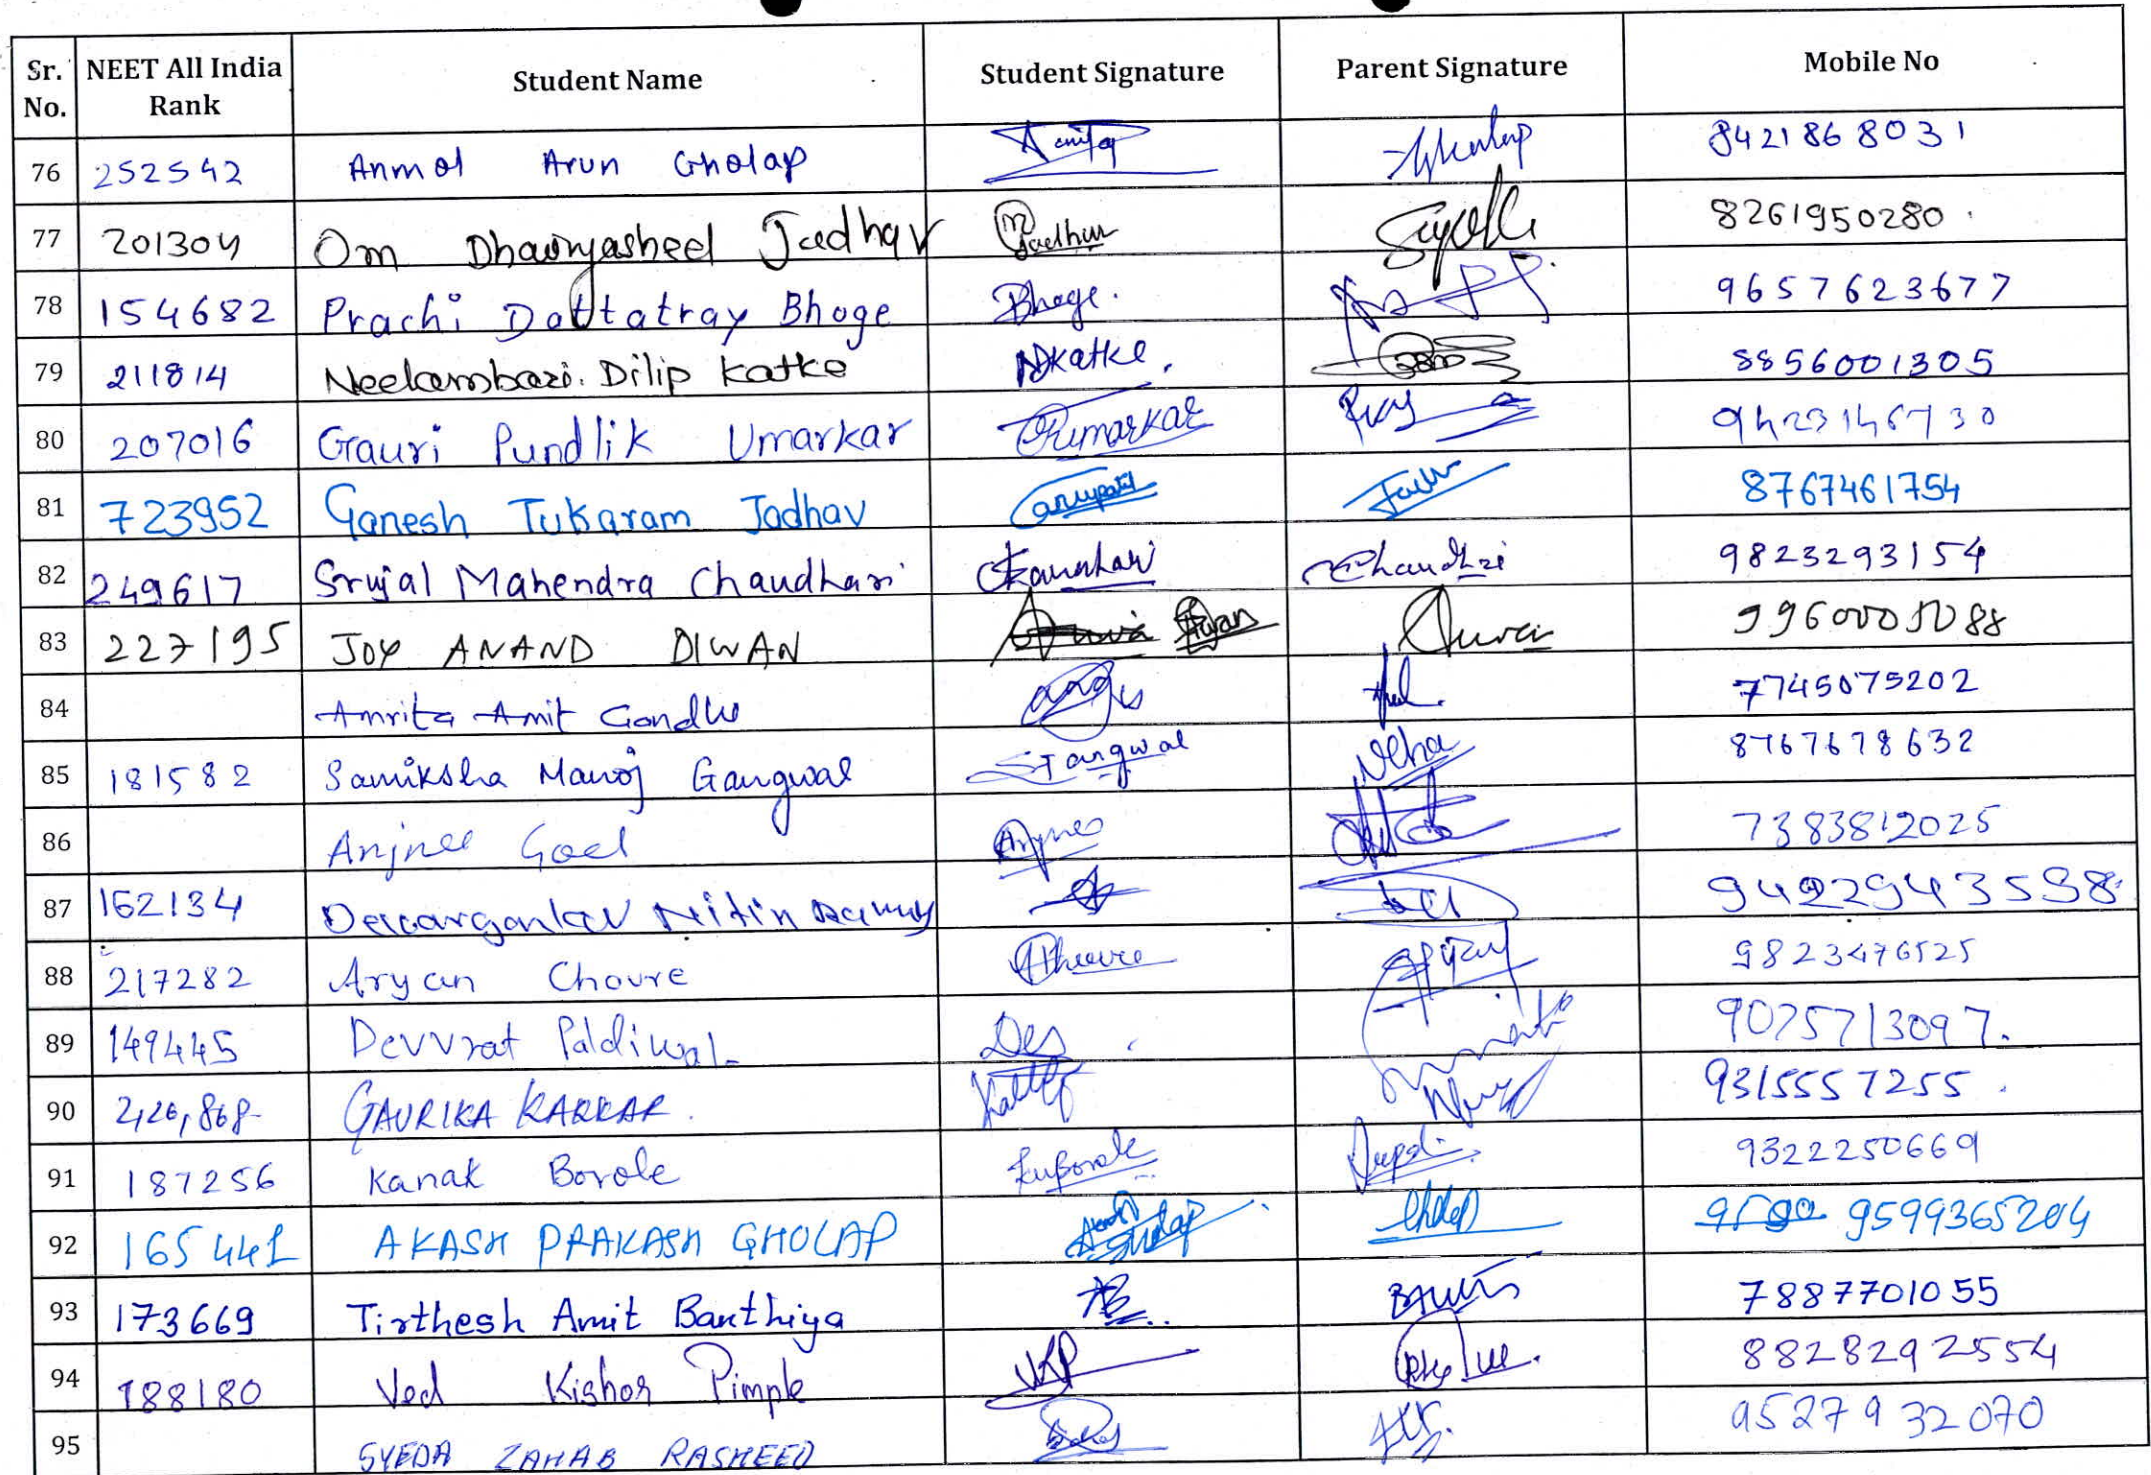 Sr. No. NEET All India Rank Student Name Student Signature Parent Signature Mobile No
76 252542 Anmol Arun Gholap 8421868031
77 201304 Om Dhairyasheel Jadhav Jadhav 8261950280
78 154682 Prachi Dattatray Bhoge Bhoge. 9657623677
79 211814 Neelambari. Dilip Katke NDKatke. 8856001305
80 207016 Gauri Pundlik Umarkar GPUmarkar 9423146730
81 723952 Ganesh Tukaram Jadhav 8767461754
82 249617 Srujal Mahendra Chaudhari Chaudhari 9823293154
83 227195 JOY ANAND DIWAN
84 Amrita Amit Gandhi 7745075202
85 181582 Samiksha Manoj Gangwal SGangwal Neha 8767678632
86 Anjnee Goel Anjnee 7383812025
87 162134 Nitin 9422943598
88 217282 Aryan Choure 9823476525
89 149445 Devvrat Paldiwal Dev 9075713097.
90 226,868 GAURIKA KAKKAR 9315557255
91 187256 Kanak Borole Borole 9322250669
92 165441 AKASH PRAKASH GHOLAP Gholap Gholap 9599365204
93 173669 Tirthesh Amit Banthiya 7887701055
94 188180 Ved Kishor Pimple VKP 8828292554
95 SYEDA ZAHAB RASHEED 9527932070